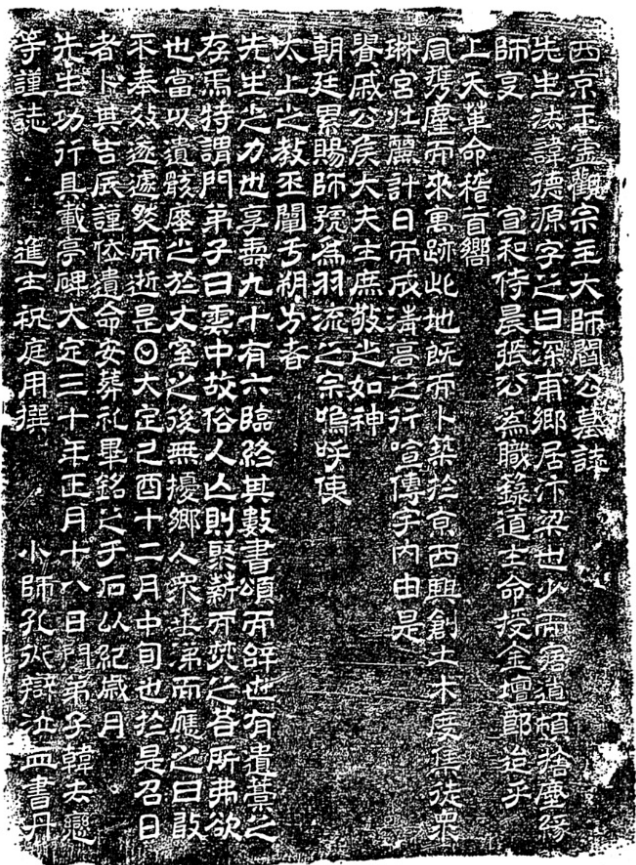 西京玉虛觀宗主大師閻公墓誌
先生法諱德源字之曰深甫鄉居汴梁也少而寤道頓捨塵緣
師受　宣和侍晨張公為職籙道士命授金壇郎迨乎
上天革命稽首嚮
風携塵而來寓跡此地既而卜築於京西興創土木度集徒眾
琳宮壯麗計日而成清高之行喧傳宇內由是
貴戚公侯大夫士庶敬之如神
朝廷累賜師號為羽流之宗嗚呼使
太上之教丕闡于朔方者
先生之力也享壽九十有六臨終其數書頌而辭世有遺藁之
存焉特謂門弟子曰雲中故俗人亡則聚薪而焚之吾所弗欲
也當以遺骸瘞之於丈室之後無擾鄉人眾垂涕而應之曰敢
不奉教遂遽然而逝是日大定己酉十二月中旬也於是召日
者卜其吉辰謹依遺命安葬礼畢銘之于石以紀歲月
先生功行具載亭碑大定三十年正月十八日門弟子韓去愆
等謹誌　進士祝庭用撰　小師孔從辯泣血書丹